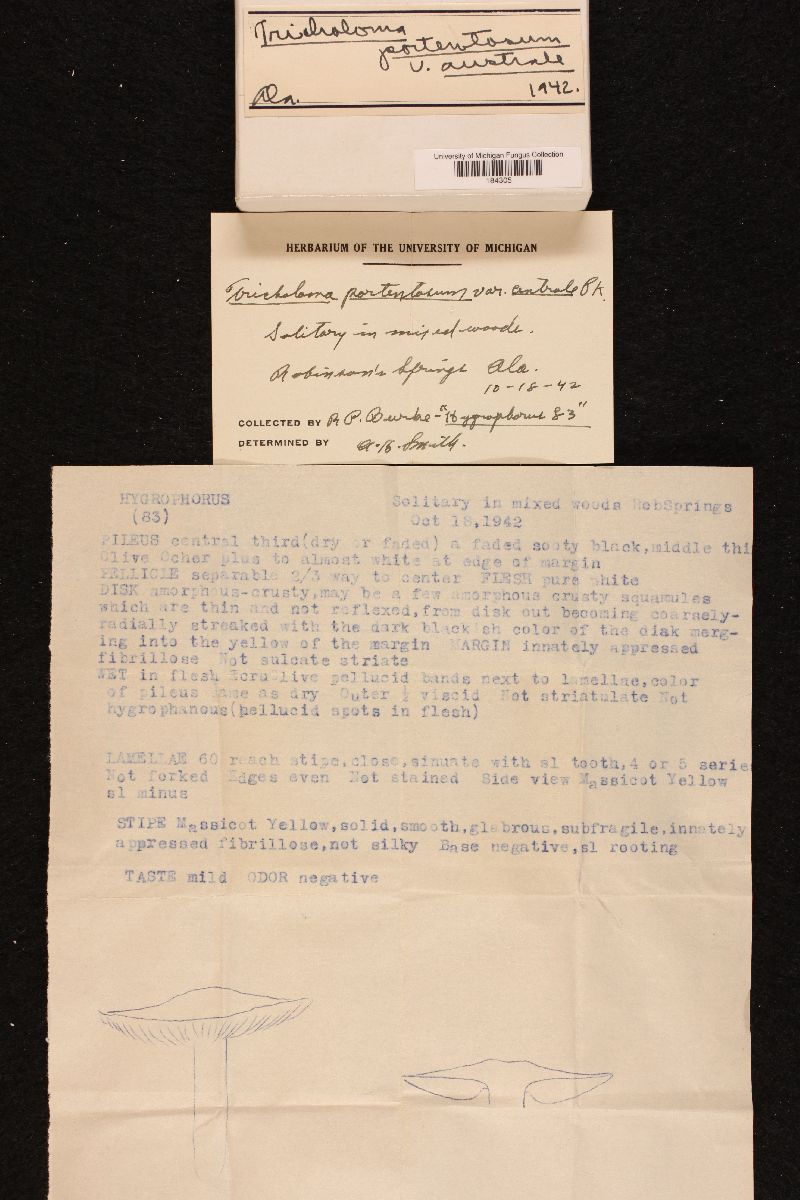 Tricholoma
portentosum
v. australe
Ala. 1942.
University of Michigan Fungus Collection
184305
HERBARIUM OF THE UNIVERSITY OF MICHIGAN
Tricholoma portentosum var. Pk.
Solitary in mixed woods.
Robinson's Springs Ala.
10-18-42
COLLECTED BY R P. Burke - "Hygrophorus 83"
DETERMINED BY A. H. Smith.
HYGROPHORUS Solitary in mixed woods RobSprings
(83) Oct 18,1942
PILEUS central third(dry or faded) a faded sooty black,middle thi
Olive Ocher plus to almost white at edge of margin
PELLICLE separable 2/3 way to center FLESH pure white
DISK amorphous-crusty,may be a few amorphous crusty squamules
which are thin and not reflexed,from disk out becoming coarsely-
radially streaked with the dark blackish color of the disk merg-
ing into the yellow of the margin MARGIN innately appressed
fibrillose Not sulcate striate
WET in flesh EcruOlive pellucid bands next to lamellae,color
of pileus same as dry Outer ½ viscid Not striatulate Not
hygrophanous(pellucid spots in flesh)
LAMELLAE 60 reach stipe,close,sinuate with sl tooth,4 or 5 serie
Not forked Edges even Not stained Side view Massicot Yellow
sl minus
STIPE Massicot Yellow,solid,smooth,glabrous,subfragile,innately
appressed fibrillose,not silky Base negative,sl rooting
TASTE mild ODOR negative